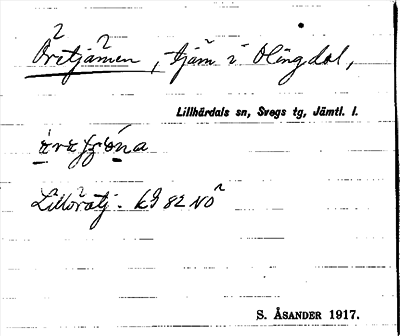 Öretjärnen, tjärn i Olingdal,
Lillhärdals sn, Svegs tg, Jämtl. l.
Lillöratj. k9 82 NO
S. ÅSANDER 1917.